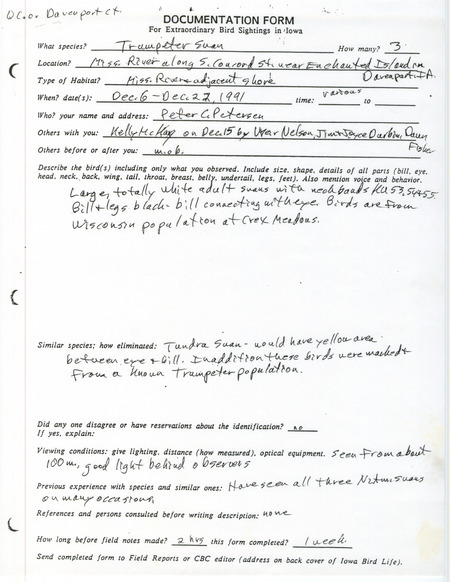 DOCUMENTATION FORM
For Extraordinary Bird Sightings in Iowa
What species? Trumpeter Swan How many? 3
Location? Miss. River along S. Concord St. near Enchanted Island in
Davenport IA.
Type of Habitat? Miss. River adjacent shore
When? date(s): Dec. 6 - Dec. 22, 1991 time: various to
Who? your name and address: Peter C. Petersen
Others with you: Kelly McKay on Dec. 15 by Nelson, Jim & Joyce Durbin,
Others before or after you: m.ob.
Describe the bird(s) including only what you observed. Include size, shape, details of all parts (bill, eye,
head, neck, back, wing, tail, throat, breast, belly, undertail, legs, feet). Also mention voice and behavior.
Large, totally white adult swans with neckbands 53, 54, 55.
Bill & legs black - bill connecting with eye. Birds are from
Wisconsin population at Crex Meadows.
Similar species; how eliminated: Tundra Swan - would have yellow area
between eye & bill. In addition these birds were marked &
from a known Trumpeter population.
Did any one disagree or have reservations about the identification? no
If yes, explain:
Viewing conditions: give lighting, distance (how measured), optical equipment. Seen from about
100 m, good light behind observers
Previous experience with species and similar ones: Have seen all three N. Am. swans
on many occasions,
References and persons consulted before writing description: none
How long before field notes made? 2 hrs this form completed? 1 week
Send completed form to Field Reports or CBC editor (address on back cover of Iowa Bird Life).